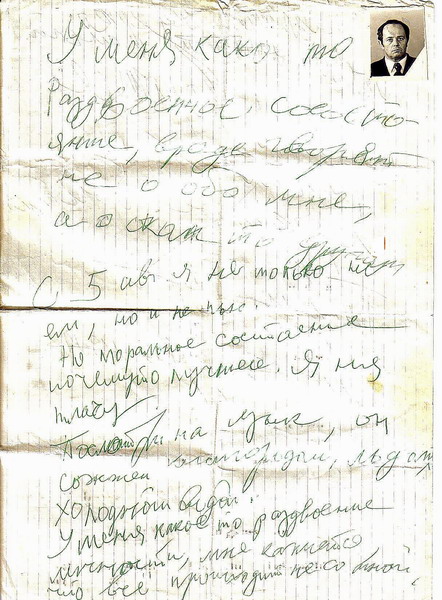 У меня како то
раздвоенное, состо-
яние, вроде говорят
не о обо мне,
а о каком то другом
С 5 авг я не только не
ем, но и не пью
Но моральное состояние
почемуто лучшее. Я не
плачу
Посмотри на язык, он
сожжен
холодной вода.
У меня какое то раздвоение
личности, мне кажется
что все происходит не со мной,